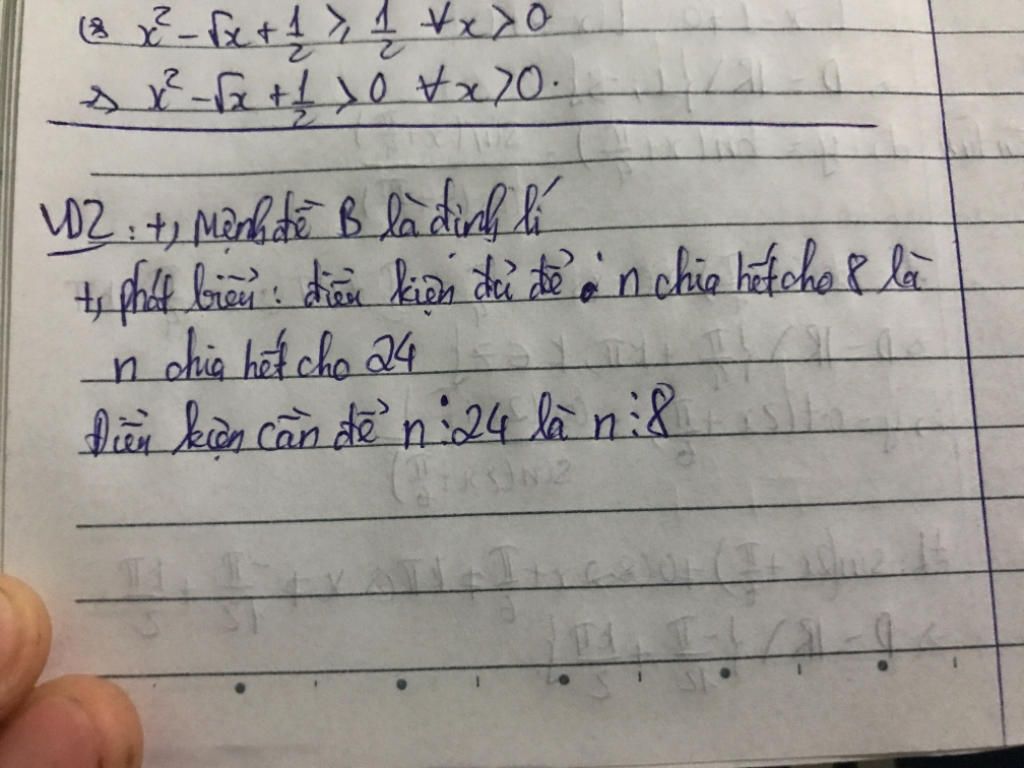 (=) x² - √x + 1/2 ≥ 1/2 ∀x > 0
=> x² - √x + 1/2 > 0 ∀x > 0.
VD2: +, Mệnh đề B là định lí
+, phát biểu: điều kiện đủ để n chia hết cho 8 là
n chia hết cho 24
Điều kiện cần để n ⋮ 24 là n ⋮ 8